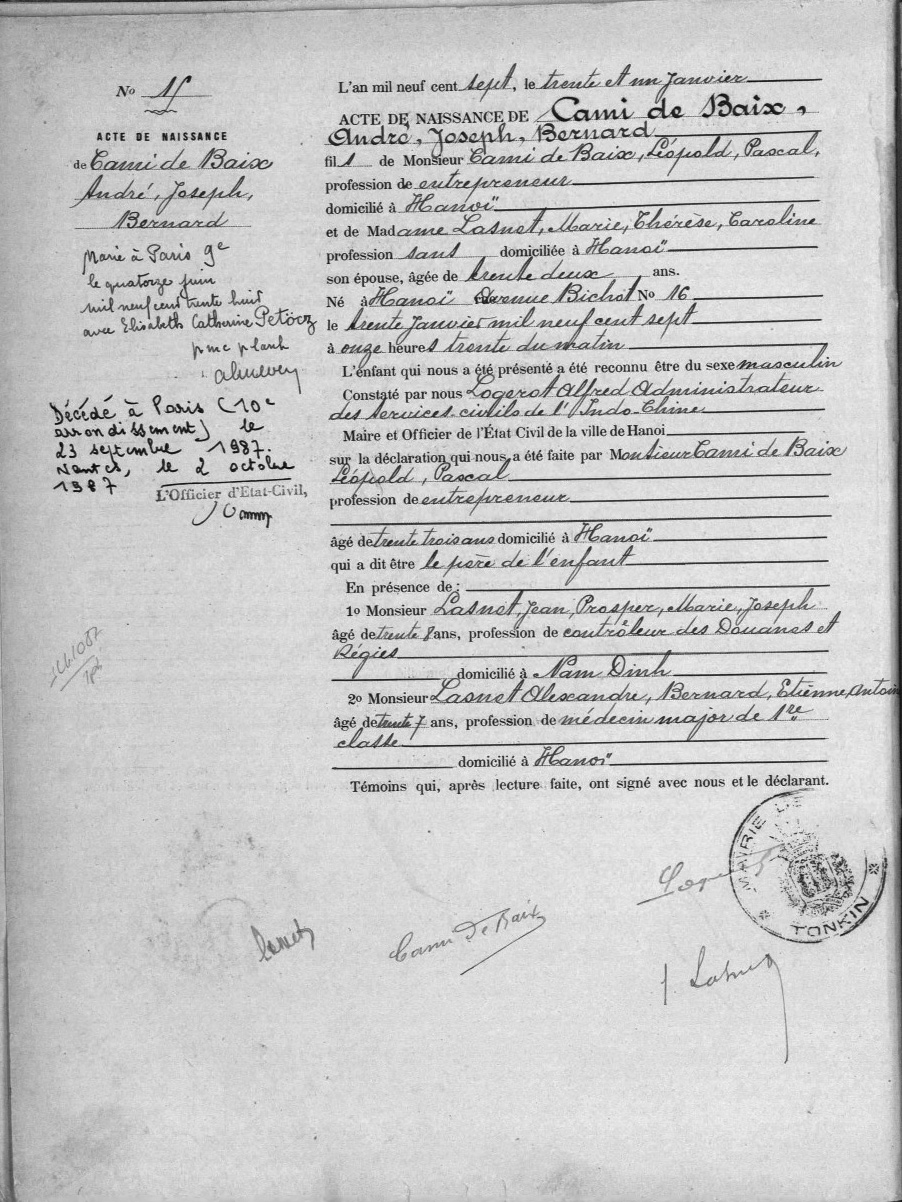 No 15
ACTE DE NAISSANCE
de Cami de Baix
André, Joseph,
Bernard
Marié à Paris 9e
le quatorze juin
mil neuf cent trente huit
avec Elisabeth Catherine Petöcz
Décédé à Paris (10e
arrondissement) le
23 septembre 1987.
Nantes, le 2 octobre
1987
L'Officier d'Etat-Civil,
L'an mil neuf cent sept, le trente et un Janvier
ACTE DE NAISSANCE DE Cami de Baix,
André, Joseph, Bernard
fils de Monsieur Cami de Baix, Léopold, Pascal,
profession de entrepreneur
domicilié à Hanoï
et de Madame Lasnet, Marie, Thérèse, Caroline
profession sans domiciliée à Hanoï
son épouse, âgée de trente deux ans.
Né à Hanoï Avenue Bichot No 16
le trente Janvier mil neuf cent sept
à onze heures trente du matin
L'enfant qui nous a été présenté a été reconnu être du sexe masculin
Constaté par nous Logerot Alfred Administrateur
des Services civils de l'Indo-Chine
Maire et Officier de l'État Civil de la ville de Hanoi
sur la déclaration qui nous a été faite par Monsieur Cami de Baix
Léopold, Pascal
profession de entrepreneur
âgé de trente trois ans domicilié à Hanoï
qui a dit être le père de l'enfant
En présence de :
1o Monsieur Lasnet, Jean, Prosper, Marie, Joseph
âgé de trente 8 ans, profession de contrôleur des Douanes et
Régies
domicilié à Nam Dinh
2o Monsieur Lasnet Alexandre, Bernard, Etienne, Antoin
âgé de trente 7 ans, profession de médecin major de 1re
classe
domicilié à Hanoï
Témoins qui, après lecture faite, ont signé avec nous et le déclarant.
MAIRIE DE
TONKIN
Lasnet
Cami De Baix
J. Lasnet